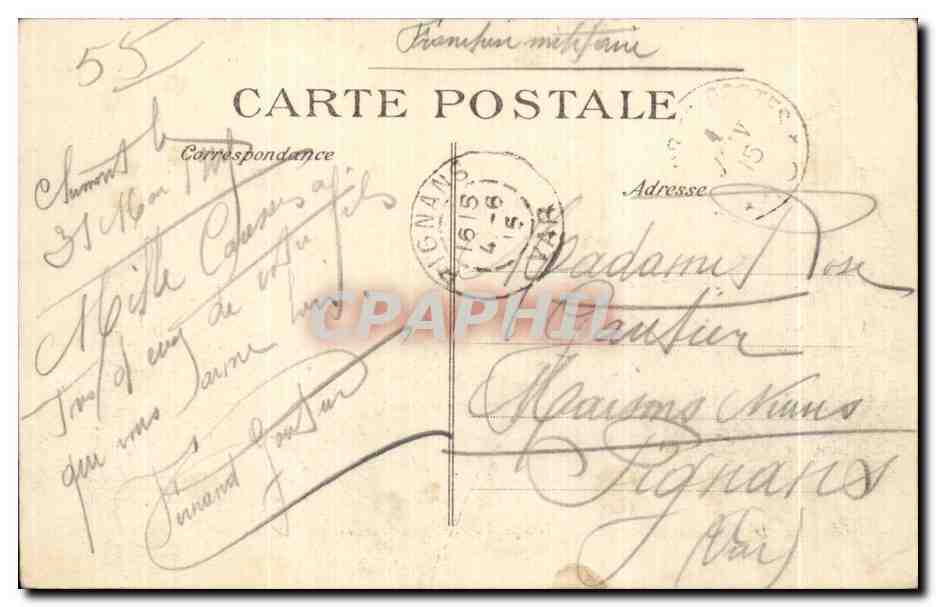 55
Franchise militaire
CARTE POSTALE
Correspondance
Adresse
le
31 Mai 1915
Mille Causes a
de votre fils
qui vous
Fernand Gautier
PIGNANS
16 15
4 -6
15
VAR
POSTES
15
CPAPHIL
Madame Rose
Gautier
Maisons Neuves
Pignans
(Var)